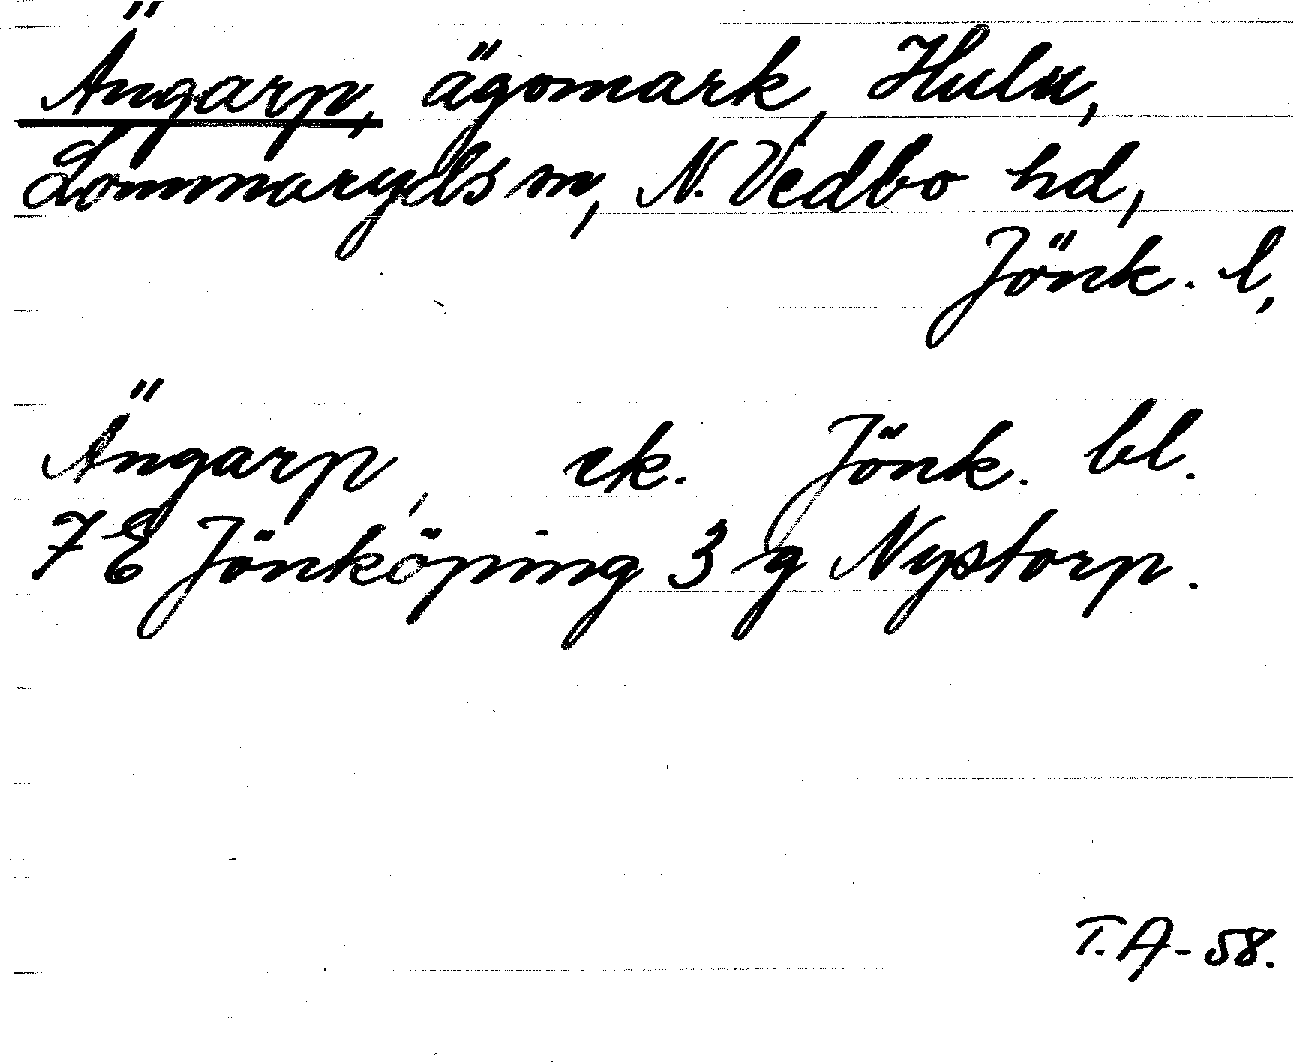 Ängarp, ägomark, Hulu,
Lommaryds sn, N. Vedbo hd,
Jönk. l,
Ängarp, ek. Jönk. bl.
7 E Jönköping 3 g Nystorp.
T.A-58.